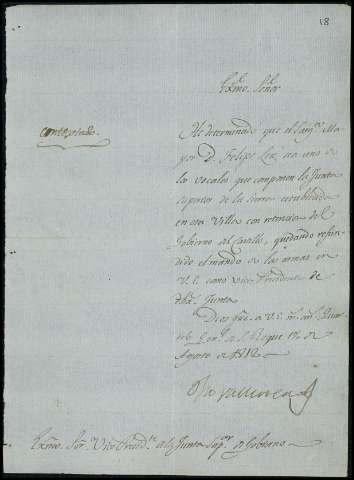 18
Exmo. Señor
Contextado.
He determinado que el Sargto. Ma
yor D. Felipe sea uno de
los vocales que componen la Junta
superior de la sierra establecida
en esa Villa con retencion del
Gobierno del Castillo, quedando refun
dido el mando de las armas en
V.E. como Vice-Presidente de
dha. Junta.
Dios gue. a V.E. ms. as. Quar
tel Genl. de S. Roque de
Agosto de 1812.
Exmo. Sor. Vice Presidte. de la Junta Supr. de Gobierno